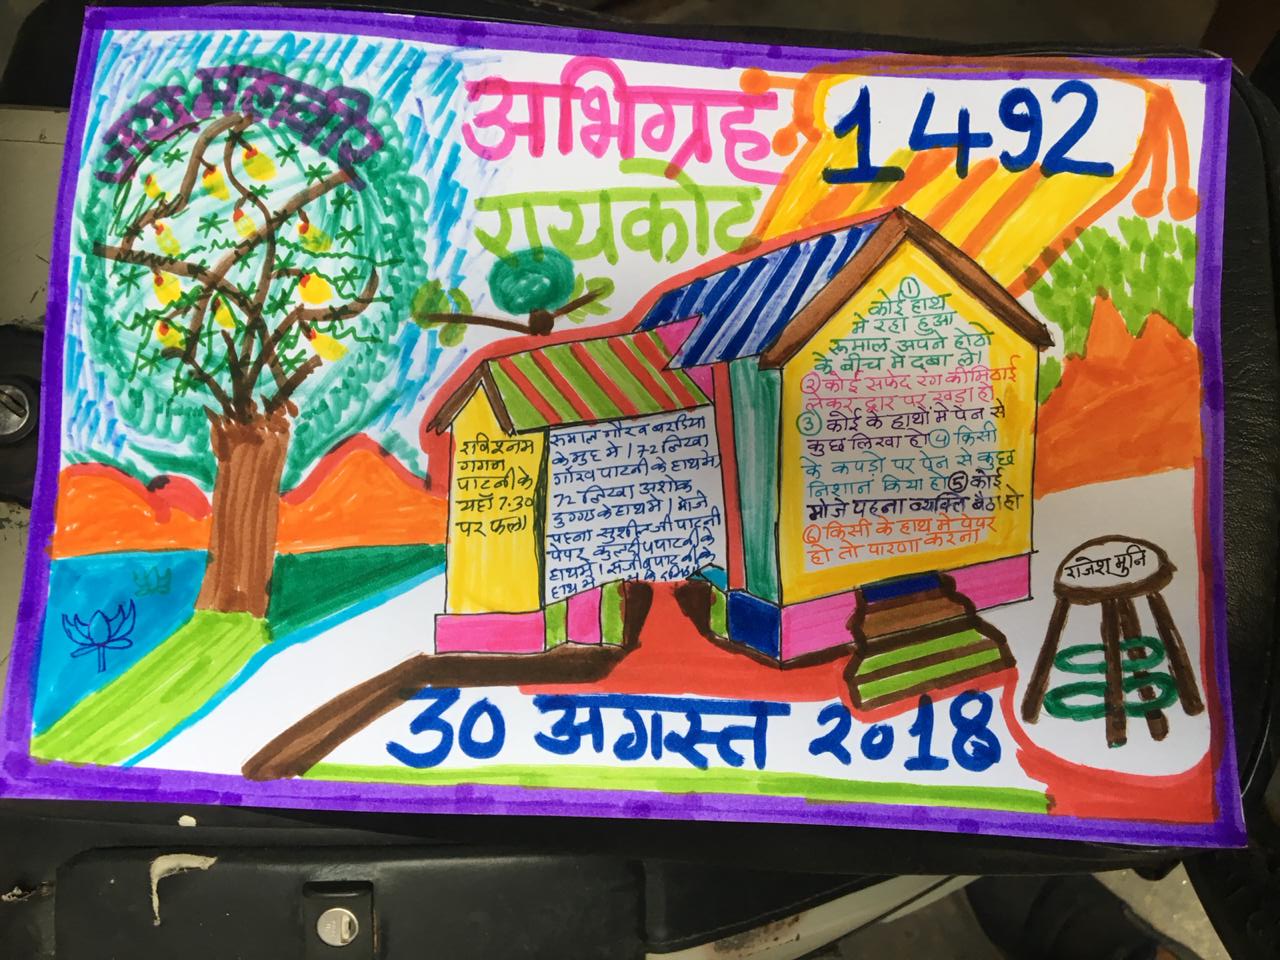 जय महावीर
अभिग्रह 1492
रायकोट
①
कोई हाथ
मे रहा हुआ
रूमाल अपने होठो
के बीच मे दबा ले।
② कोई सफेद रग की मिठाई
लेकर द्वार पर खडा हो
③ कोई के हाथो मे पेन से
कुछ लिखा हो ④ किसी
के कपडो पर पेन से कुछ
निशान किया हो ⑤ कोई
मोजे पहना व्यक्ति बैठा हो
⑥ किसी के हाथ मे पेपर
हो तो पारणा करना
रविशनम
गगन
पाटनी के
यहाँ 7.30
पर फला
रूमाल गौरव बरडिया
के मुह मे। 72 लिखा
गौरव पाटनी के हाथ मे,
72 लिखा अशोक
डुग्गड के हाथ मे। मोजे
पहना सुशील जी पाटनी
पेपर कुलदीप पाटनी के
हाथ मे। संजीव पाटनी के
हाथ मे
राजेश मुनि
30 अगस्त 2018